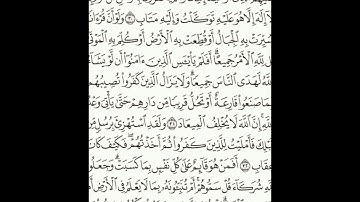 لَآ إِلَٰهَ إِلَّا هُوَ عَلَيْهِ تَوَكَّلْتُ وَإِلَيْهِ مَتَابِ ٣٠ وَلَوْ أَنَّ قُرْءَانًا
سُيِّرَتْ بِهِ ٱلْجِبَالُ أَوْ قُطِّعَتْ بِهِ ٱلْأَرْضُ أَوْ كُلِّمَ بِهِ ٱلْمَوْتَىٰ
لِّلَّهِ ٱلْأَمْرُ جَمِيعًا أَفَلَمْ يَا۟يْـَٔسِ ٱلَّذِينَ ءَامَنُوٓا۟ أَن لَّوْ يَشَآءُ
ٱللَّهُ لَهَدَى ٱلنَّاسَ جَمِيعًا وَلَا يَزَالُ ٱلَّذِينَ كَفَرُوا۟ تُصِيبُهُم
بِمَا صَنَعُوا۟ قَارِعَةٌ أَوْ تَحُلُّ قَرِيبًا مِّن دَارِهِمْ حَتَّىٰ يَأْتِىَ وَعْدُ
ٱللَّهِ إِنَّ ٱللَّهَ لَا يُخْلِفُ ٱلْمِيعَادَ ٣١ وَلَقَدِ ٱسْتُهْزِئَ بِرُسُلٍ مِّن
قَبْلِكَ فَأَمْلَيْتُ لِلَّذِينَ كَفَرُوا۟ ثُمَّ أَخَذْتُهُمْ فَكَيْفَ كَانَ
عِقَابِ ٣٢ أَفَمَنْ هُوَ قَآئِمٌ عَلَىٰ كُلِّ نَفْسٍۭ بِمَا كَسَبَتْ وَجَعَلُوا۟
لِلَّهِ شُرَكَآءَ قُلْ سَمُّوهُمْ أَمْ تُنَبِّـُٔونَهُۥ بِمَا لَا يَعْلَمُ فِى ٱلْأَرْضِ